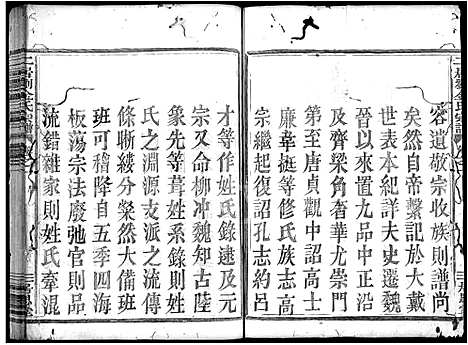 容遺敬宗收族則譜尚
矣然自帝繫記於大戴
世表本紀詳夫史遷魏
晉以來置九品中正沿
及齊梁角奢華尤崇門
第至唐貞觀中詔高士
廉挺等修氏族志高
宗繼起復詔孔志約呂
才等作姓氏錄逮及中
宗又命柳冲魏知古陸
象先等撰姓系錄則姓
氏之支派之流傳
條晰縷分粲然大備班
班可稽降自五季四海
板蕩宗法廢弛官則品
流錯雜家則姓氏牽混